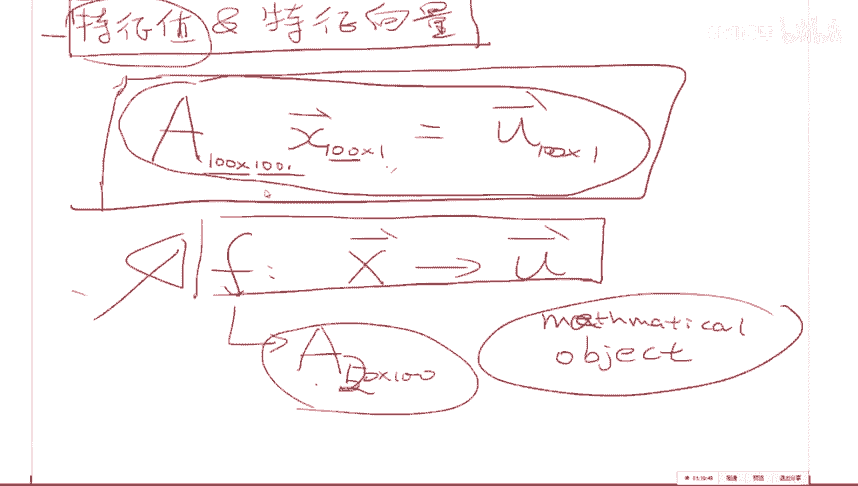 特征值 & 特征向量
A 100x100 x 100x1 = u 100x1
f: x → u
A 50x100
mathmatical
object